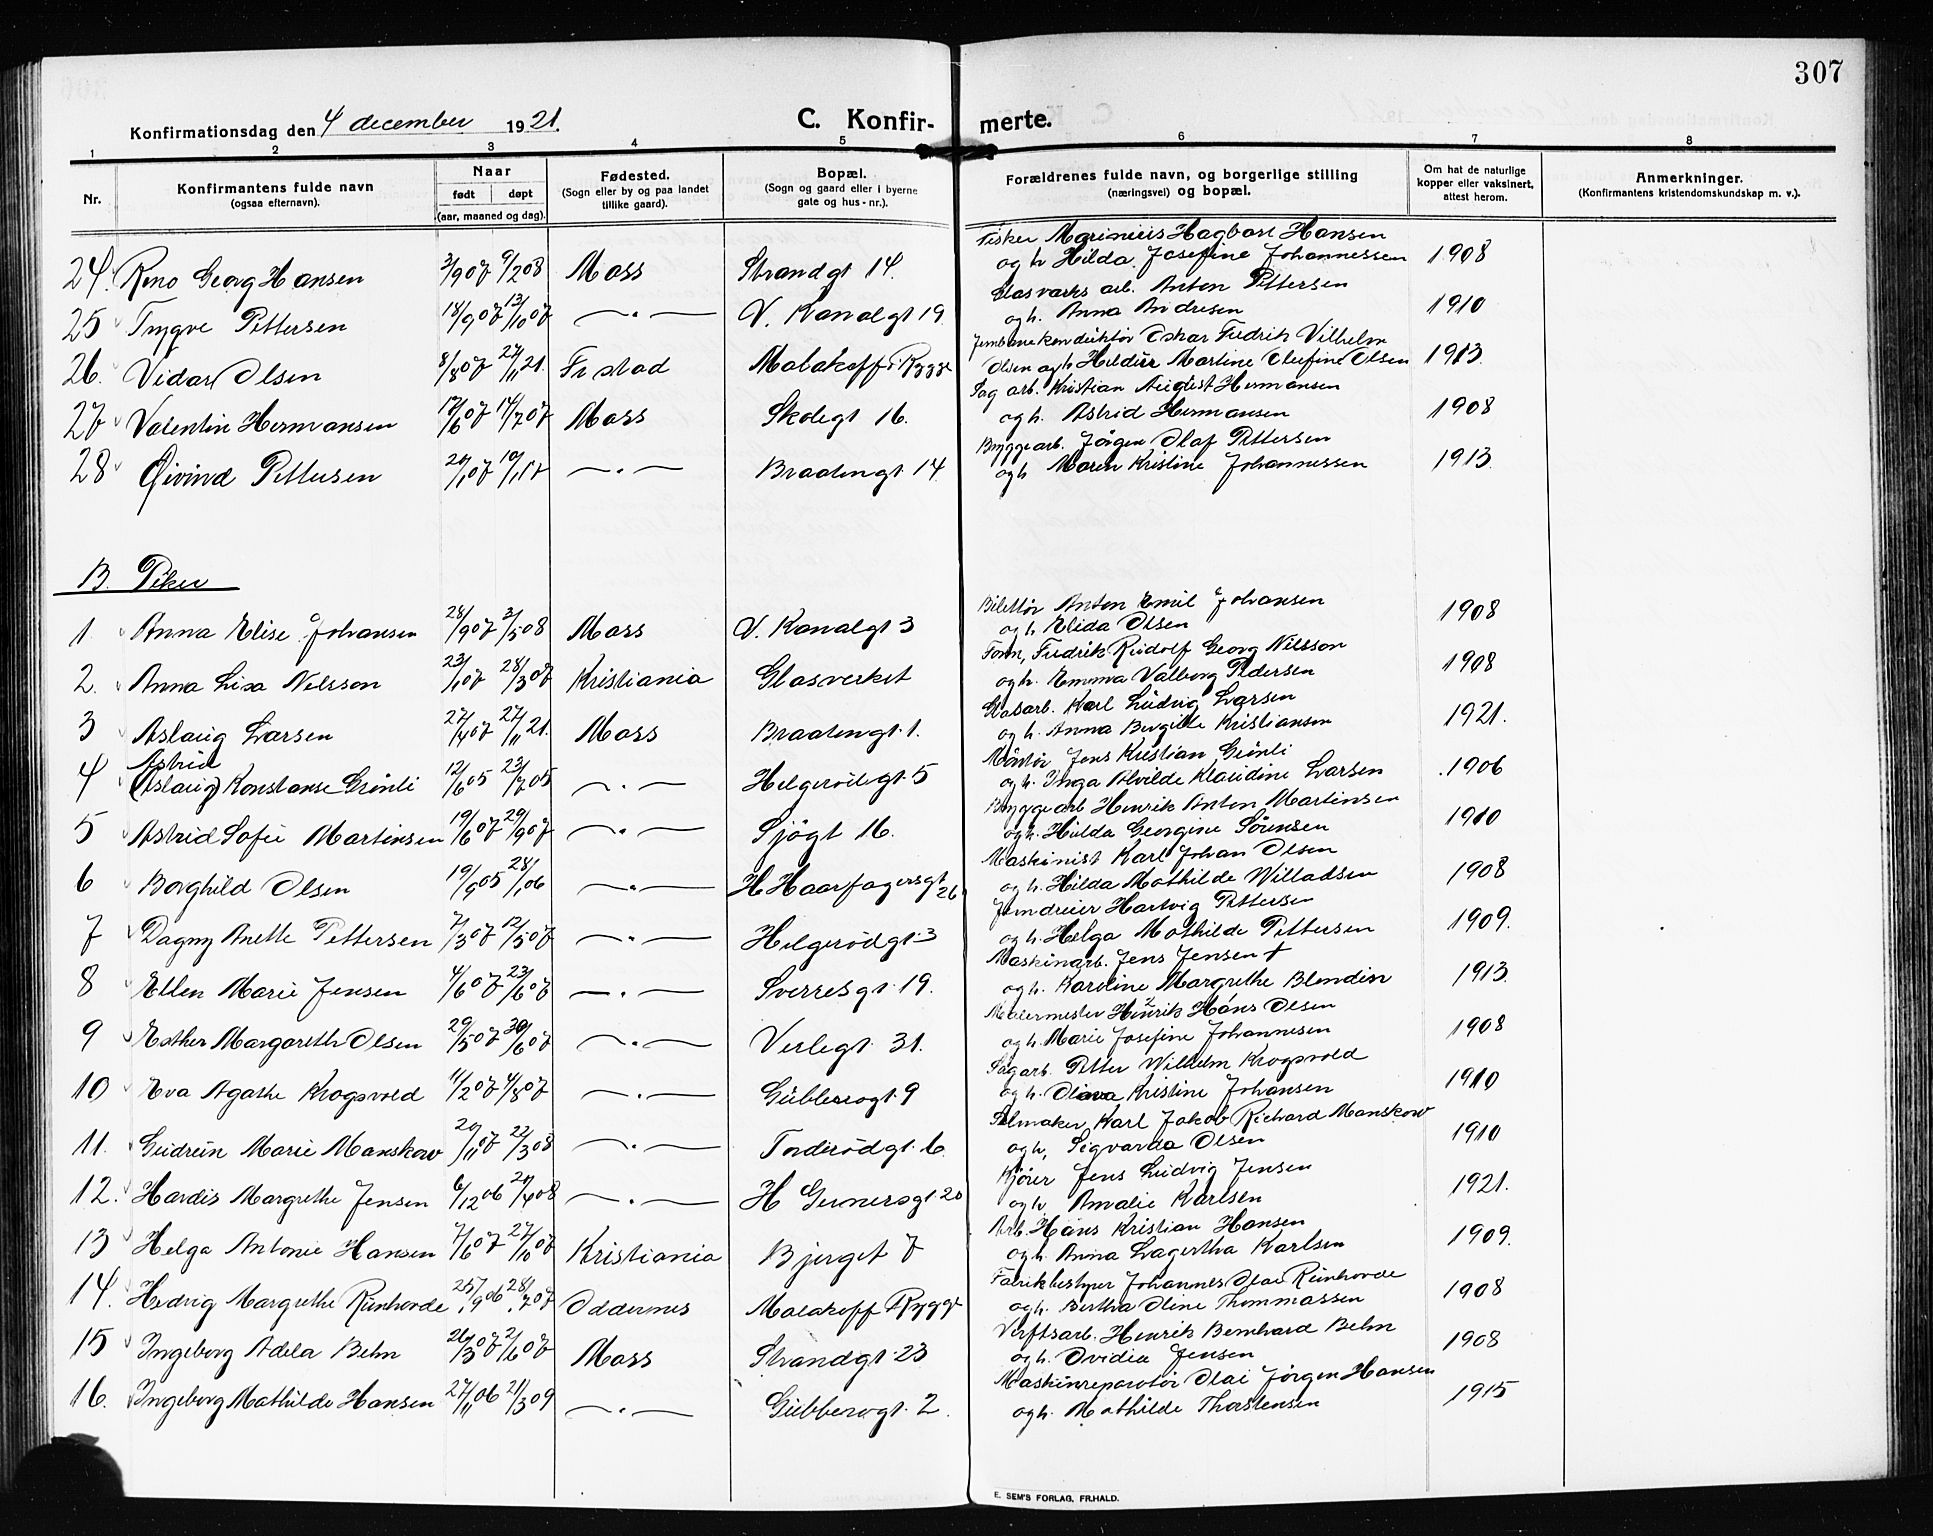 307
Konfirmationsdag den 4 december 1921.
C. Konfirmerte.
1 2 3 4 5 6 7 8
Nr. Konfirmantens fulde navn (ogsaa efternavn). Naar født døpt (aar, maaned og dag). Fødested. (Sogn eller by og paa landet tillike gaard). Bopæl. (Sogn og gaard eller i byerne gate og hus-nr.). Forældrenes fulde navn, og borgerlige stilling (næringsvei) og bopæl. Om hat de naturlige kopper eller vaksinert, attest herom. Anmerkninger. (Konfirmantens kristendomskundskap m. v.).
24. Reno Georg Hansen 3/907 9/208 Moss Strandgt 14. Fisker Marinius Hagbart Hansen og h Hilda Josefine Johannessen 1908
25 Trygve Pettersen 18/907 13/1007 —"— V. Kanalgt 19 Glasverks arb. Anton Pettersen og h. Anna Andresen 1910
26. Vidar Olsen 8/807 27/11 21. Fr stad Malakoff i Rygge Jernbanekonduktör Oskar Fredrik Vilhelm Olsen og h Hildur Martine Olefine Olsen 1913.
27 Valentin Hermansen 17/607 14/707 Moss Skolegt 16. Sag arb. Kristian August Hermansen og h. Astrid Hermansen 1908
28 Øivind Pettersen 20/107 —"— Braatengt 14 Bryggearb. Jörgen Olaf Pettersen og h Maren Kristine Johannessen 1913.
B. Piker
1. Anna Elise Johansen 28/907 3/508 Moss V. Kanalgt 3 Billettör Anton Emil Johansen og h Elida Olsen 1908
2. Anna Lisa Nilsson 23/107 28/307 Kristiania Glasverket Form, Fredrik Rudolf Georg Nilsson og h. Emma Valborg Pedersen 1908
3 Aslaug Larsen 27/407 27/11 21. Moss Braatengt. 1. Glasarb. Karl Ludvig Larsen og h. Anna Bergitte Kristiansen 1921.
4 Astrid (Aslaug) Konstanse Grönli 12/605 23/705 —"— Helgerödgt. 5 Jens Kristian Grönli og h. Inga Alvilde Klaudine Larsen 1906
5 Astrid Sofie Martinsen 19/607 29/907 —"— Sjögt 16. Bryggearb Henrik Anton Martinsen og h. Hilda Georgine Sörensen 1910
6 Borghild Olsen 19/905 28/106 —"— H Haarfagersgt 26 Maskinist Karl Johan Olsen og h. Hilda Mathilde Willadsen 1908
7 Dagny Anette Pettersen 7/307 12/507 —"— Helgerödgt. 3 Jerndreier Hartvig Pettersen og h. Helga Mathilde Pettersen 1909.
8 Ellen Marie Jensen 4/607 23/607 —"— Sverresgt. 19. Maskinarb. Jens Jensen † og h. Karoline Margrethe Blendin 1913.
9 Esther Margareth Olsen 29/507 30/607 —"— Verlegt. 31. Malermester Henrik Hans Olsen og h. Marie Josefine Johannesen 1908
10 Eva Agathe Krogsvold 11/207 4/807 —"— Gubberogt. 9 Sagarb. Petter Wilhelm Krogsvold og h. Olava Kristine Johansen 1910
11. Gudrun Marie Manskow 20/1107 22/308 —"— Torderödgt. 6. Karl Jakob Richard Manskow og h, Sigvarda Olsen 1910
12. Hardis Margrethe Jensen 6/1206 20/408 —"— H Gernersgt 20 Kjörer Jens Ludvig Jensen og h. Amalie Karlsen 1921.
13 Helga Antonie Hansen 7/607 27/1007 Kristiania Bjerget 7 Arb. Hans Kristian Hansen og h. Anna Lagertha Karlsen 1909.
14. Hedvig Margrethe Runhovde 25/906 28/707 Oddernes Malakoff i Rygge Fabrikbestyrer Johannes Olai Runhovde og h. Bertha Oline Thommassen 1908
15 Ingeborg Adela Behn 26/307 2/607 Moss Strandgt. 23 Verftsarb. Henrik Bernhard Behn og h. Ovidia Jensen 1908
16. Ingeborg Mathilde Hansen 27/1106 21/309 —"— Gubberogt. 2. Maskinreparatör Olai Jörgen Hansen og h. Mathilde Thorstensen 1915
E. SEM'S FORLAG, FR.HALD.